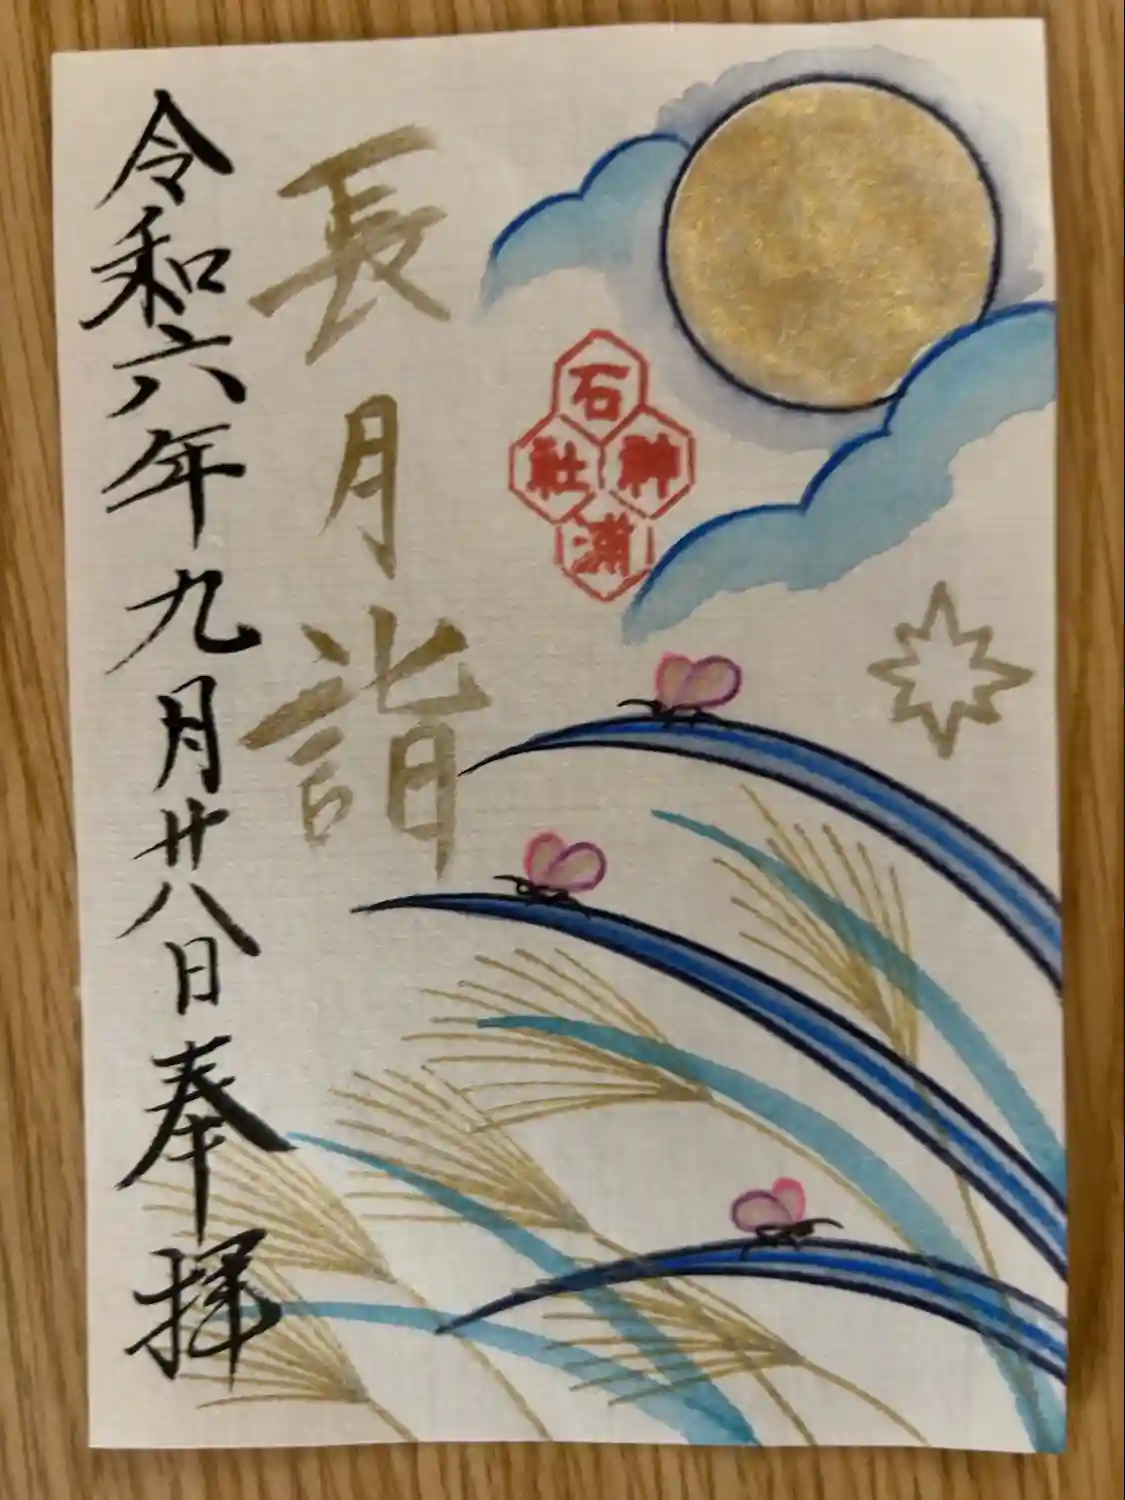 長月詣
令和六年九月廿八日奉拝
石
社神
浦